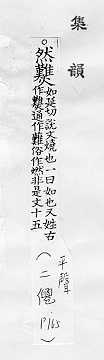 集韻
然難
如延切說文燒也一曰如也又姓古
作難通作難俗作燃非是文十五
(平聲
二僊 P165)